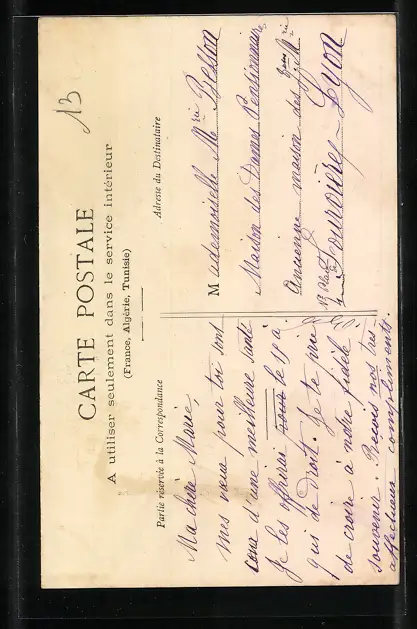 13
CARTE POSTALE
A utiliser seulement dans le service intérieur
(France, Algérie, Tunisie)
Partie réservée à la Correspondance
Adresse du Destinataire
Ma chère Marie,
mes vœux pour toi sont
ceux d'une meilleure santé
Je les offrirai le 19 à
qui de droit. Je te prie
de croire à notre fidèle
souvenir. Reçois nos très
affectueux compliments.
Mademoiselle Mrie Besson
Maison des Dames Pensionnaires
Ancienne maison des
Fourvière-Lyon